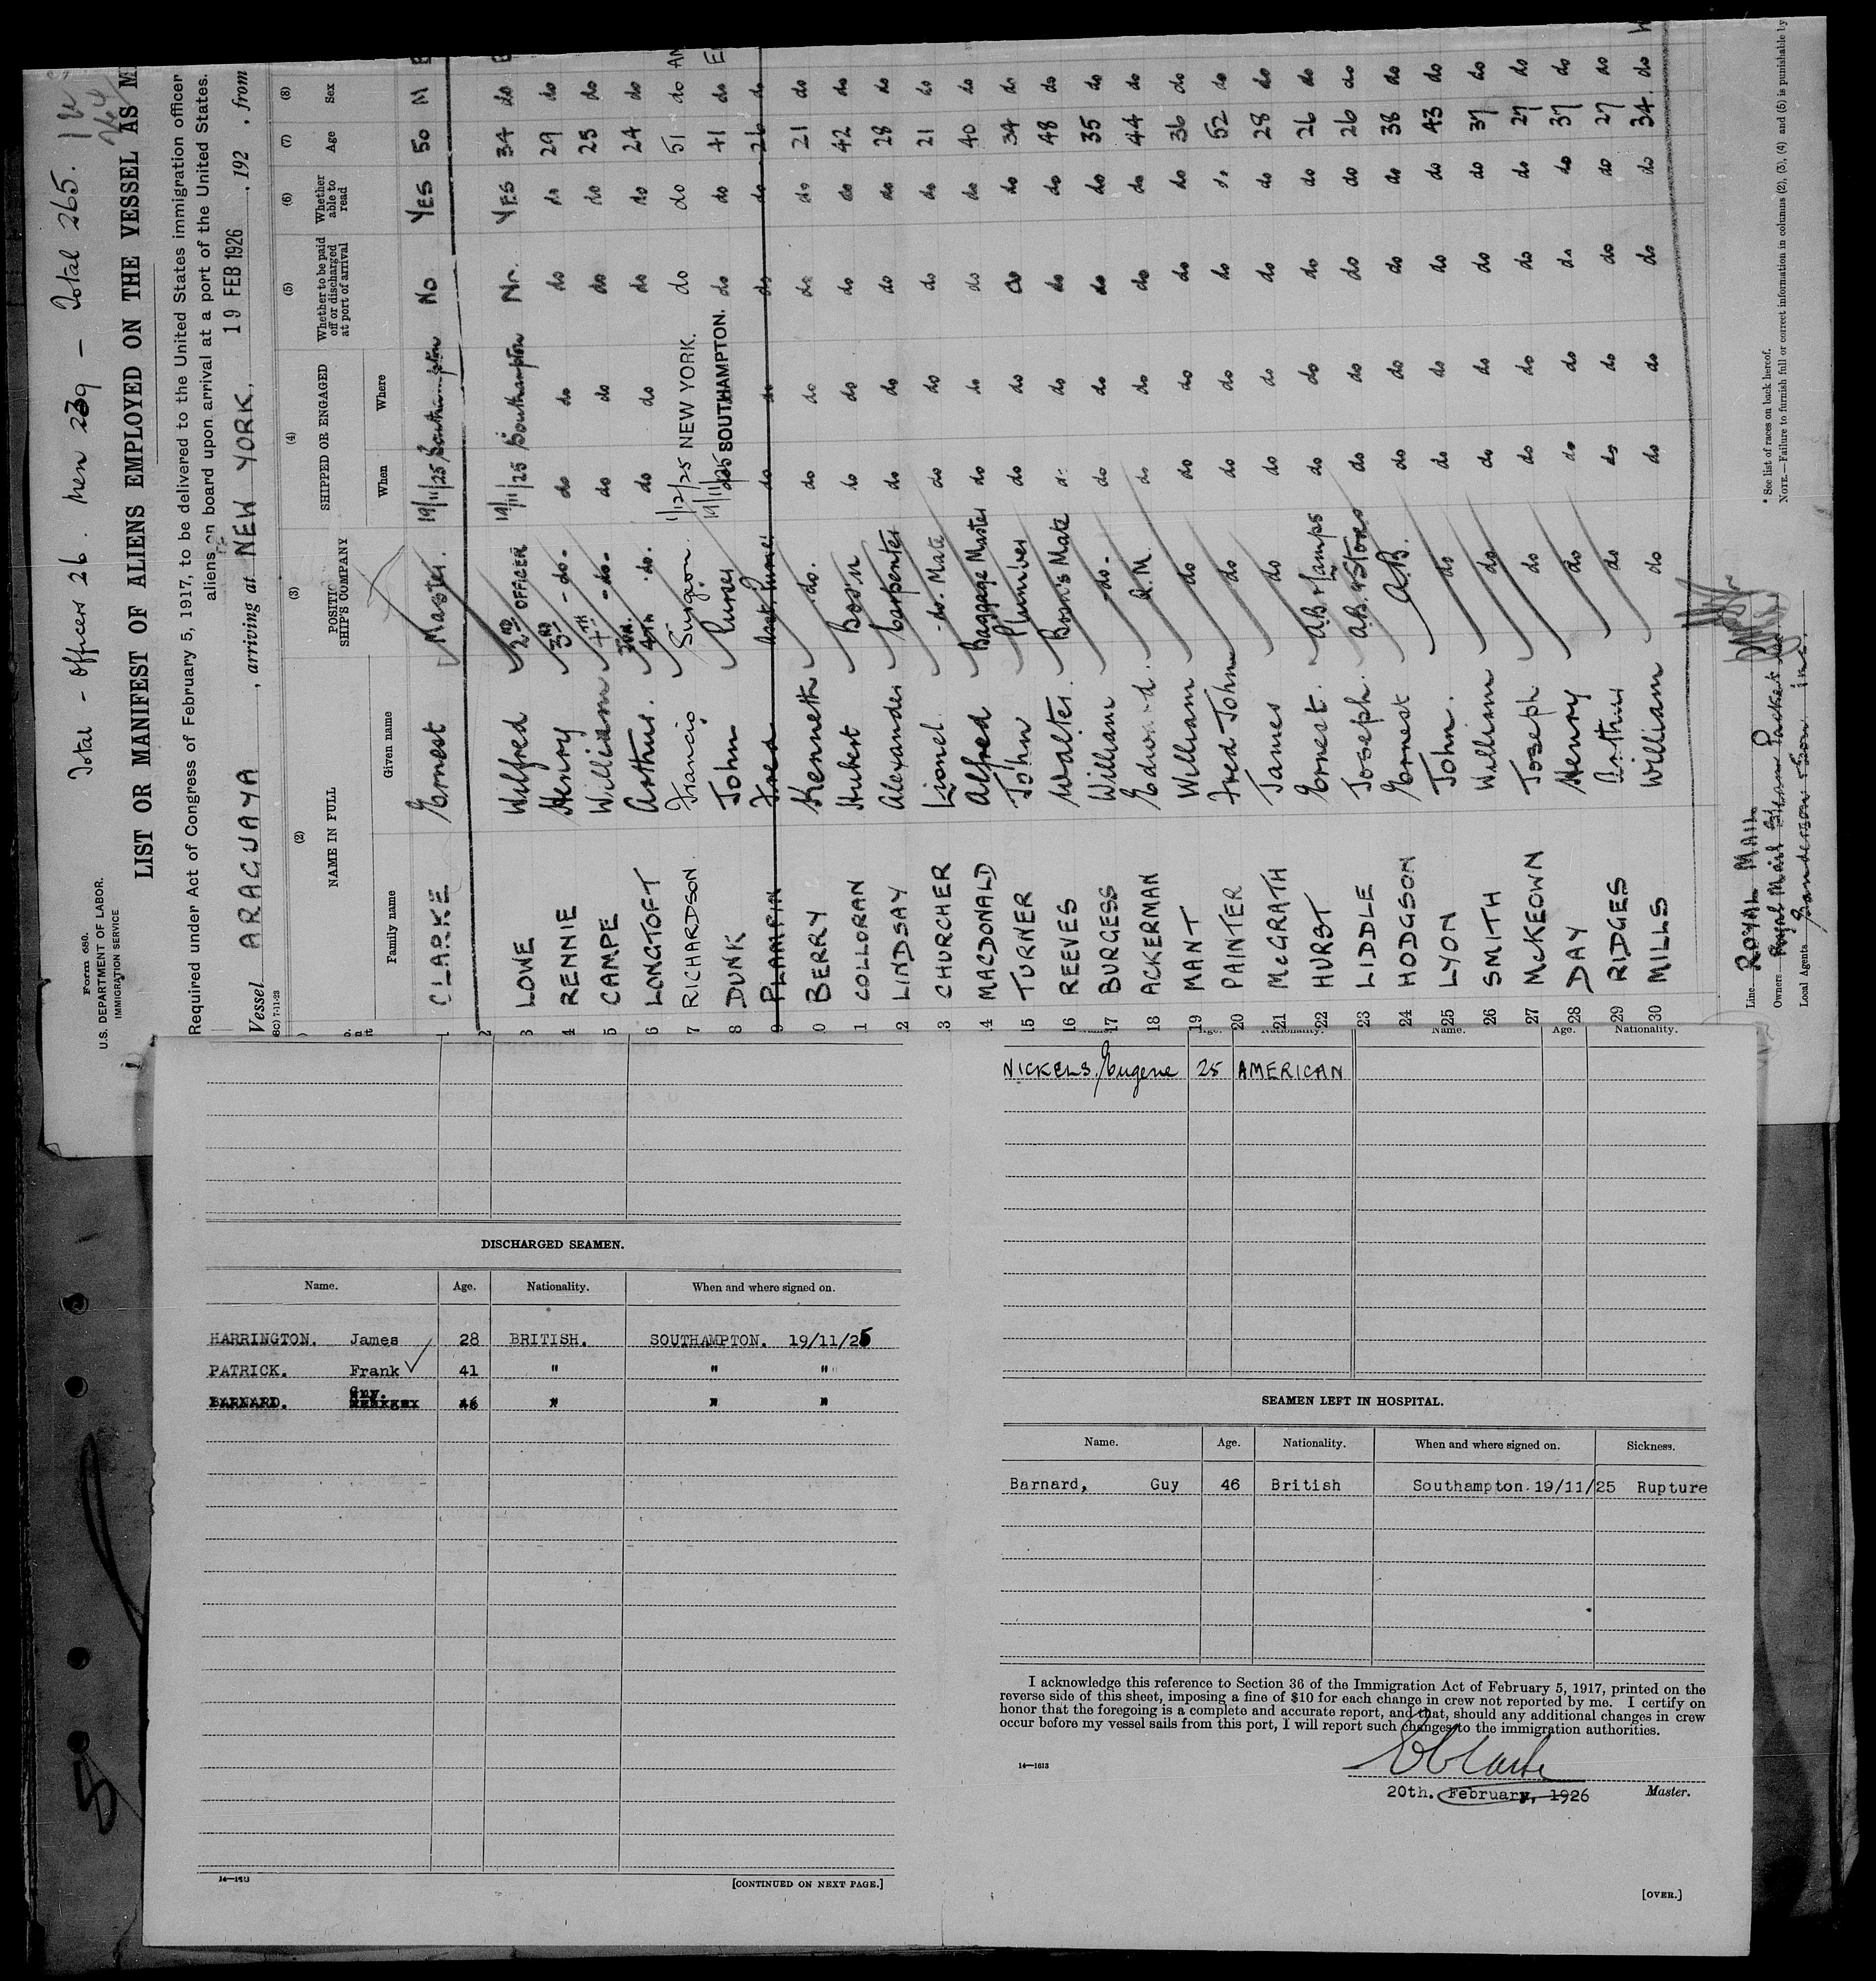 Total - Officers 26. Men 239 - Total 265.
Form 680.
U.S. DEPARTMENT OF LABOR.
IMMIGRATION SERVICE
LIST OR MANIFEST OF ALIENS EMPLOYED ON THE VESSEL AS M
Required under Act of Congress of February 5, 1917, to be delivered to the United States immigration officer
aliens on board upon arrival at a port of the United States.
Vessel ARAGUAYA, arriving at NEW YORK, 19 FEB 1926, 192 , from
(2) (3) (4) (5) (6) (7) (8)
NAME IN FULL SHIP'S COMPANY SHIPPED OR ENGAGED Whether to be paid off or discharged at port of arrival Whether able to read Age Sex
Family name Given name When Where
1 CLARKE Ernest Master. 19/11/25 Southampton No YES 50 M
2
3 LOWE Wilfred 2ND OFFICER 19/11/25 Southampton No. YES 34 do
4 RENNIE Henry 3RD -do- do do do do 29 do
5 CAMPE William 4TH -do- do do do do 25 do
6 LONGTOFT Arthur. JUN. 4TH do. do do do do 24 do
7 RICHARDSON Francis Surgeon 1/12/25 NEW YORK. do do 51 do AM
8 DUNK John Purser 19/11/25 SOUTHAMPTON. do do 41 do E
9 PLAMPIN Fred Asst. Purser do do do do 26 do
0 BERRY Kenneth do. do do do do 21 do
1 COLLORAN Hubert Bos'n do do do do 42 do
2 LINDSAY Alexander Carpenter do do do do 28 do
3 CHURCHER Lionel -do. Mate do do do do 21 do
4 MACDONALD Alfred Baggage Master do do do do 40 do
15 TURNER John Plumber do do do do 34 do
16 REEVES Walter. Bosn's Mate do do do do 48 do
17 BURGESS William -do- do do do do 35 do
18 ACKERMAN Edward. Q.M. do do do do 44 do
19 MANT William do do do do do 36 do
20 PAINTER Fred John do do do do do 52 do
21 McGRATH James do do do do do 28 do
22 HURST Ernest. A.B. & Lamps do do do do 26 do
23 LIDDLE Joseph. A.B. & Stores do do do do 26 do
24 HODGSON Ernest A.B. do do do do 38 do
25 LYON John. do do do do do 43 do
26 SMITH William do do do do do 37 do
27 McKEOWN Joseph do do do do do 27 do
28 DAY Henry do do do do do 37 do
29 RIDGES Arthur do do do do do 27 do
30 MILLS William do do do do do 34. do
Line ROYAL MAIL
Owners Royal Mail Steam Packet
Local Agents Sanderson & Son inc.
* See list of races on back hereof.
NOTE.—Failure to furnish full or correct information in columns (2), (3), (4) and (5) is punishable by
DISCHARGED SEAMEN.
Name. Age. Nationality. When and where signed on.
HARRINGTON. James 28 BRITISH. SOUTHAMPTON. 19/11/25
PATRICK. Frank 41 " " "
BARNARD. Guy. 46 " " "
[CONTINUED ON NEXT PAGE.]
Name. Age. Nationality.
NICKELS. Eugene 25 AMERICAN
SEAMEN LEFT IN HOSPITAL.
Name. Age. Nationality. When and where signed on. Sickness.
Barnard, Guy 46 British Southampton 19/11/25 Rupture
I acknowledge this reference to Section 36 of the Immigration Act of February 5, 1917, printed on the
reverse side of this sheet, imposing a fine of $10 for each change in crew not reported by me. I certify on
honor that the foregoing is a complete and accurate report, and that, should any additional changes in crew
occur before my vessel sails from this port, I will report such changes to the immigration authorities.
14—1613
20th. February, 1926 Master.
[OVER.]
5